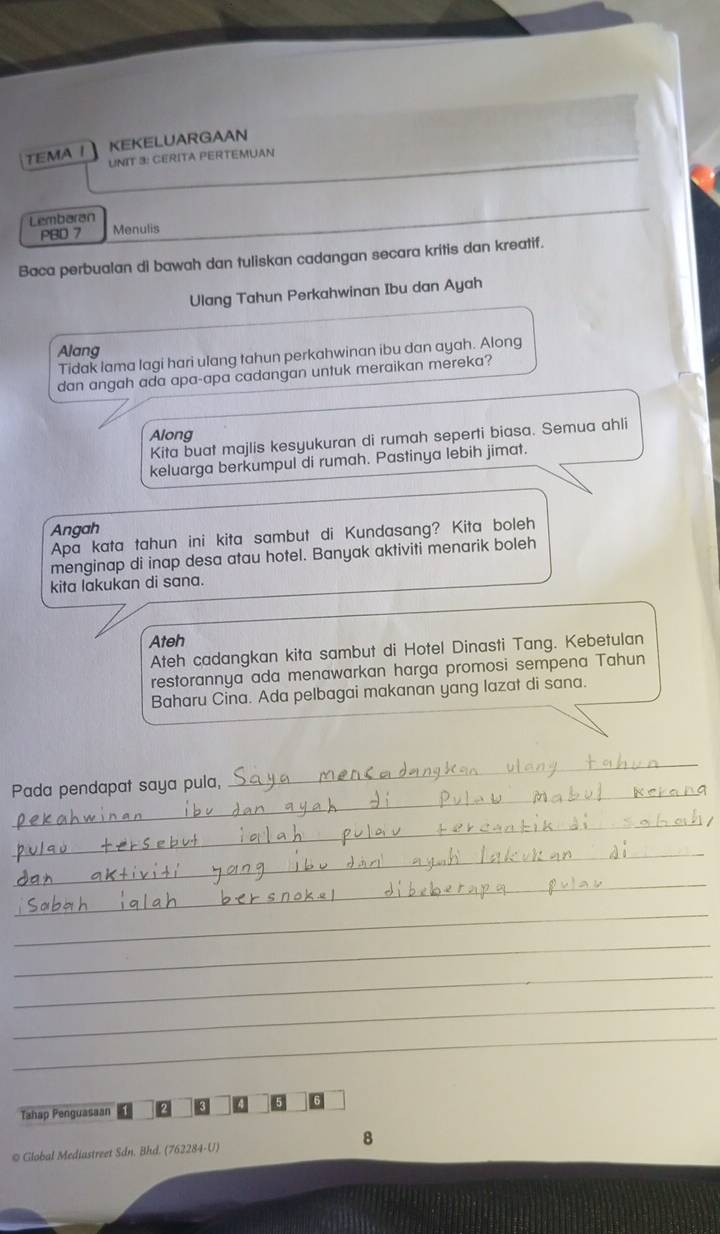 TEMA 1 KEKELUARGAAN
UNIT 3: CERITA PERTEMUAN
Lembaran
PBD 7 Menulis
Baca perbualan di bawah dan tuliskan cadangan secara kritis dan kreatif.
Ulang Tahun Perkahwinan Ibu dan Ayah
Alang
Tidak lama lagi hari ulang tahun perkahwinan ibu dan ayah. Along
dan angah ada apa-apa cadangan untuk meraikan mereka?
Along
Kita buat majlis kesyukuran di rumah seperti biasa. Semua ahli
keluarga berkumpul di rumah. Pastinya lebih jimat.
Angah
Apa kata tahun ini kita sambut di Kundasang? Kita boleh
menginap di inap desa atau hotel. Banyak aktiviti menarik boleh
kita lakukan di sana.
Ateh
Ateh cadangkan kita sambut di Hotel Dinasti Tang. Kebetulan
restorannya ada menawarkan harga promosi sempena Tahun
Baharu Cina. Ada pelbagai makanan yang lazat di sana.
Pada pendapat saya pula, Saya mencadangkan ulang tahun
pekahwinan ibu dan ayah di Pulau Mabul kerana
pulau tersebut ialah pulau tercantik di sabah,
dan aktiviti yang ibu dan ayah lakukan di
Sabah ialah bersnokel dibeberapa pulau
Tahap Penguasaan 1 2 3 4 5 6
8
© Global Mediastreet Sdn. Bhd. (762284-U)